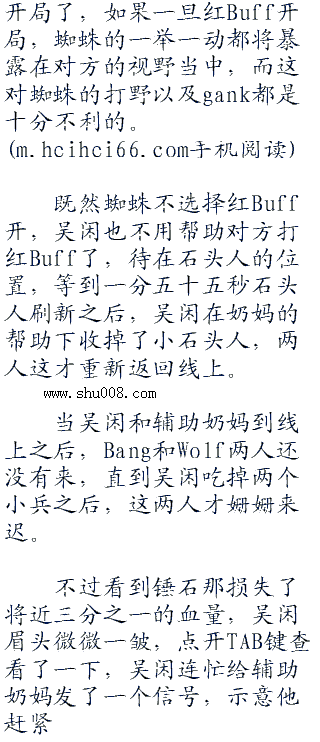 开局了，如果一旦红Buff开
局，蜘蛛的一举一动都将暴
露在对方的视野当中，而这
对蜘蛛的打野以及gank都是
十分不利的。
(m.hcihci66.com手机阅读)
既然蜘蛛不选择红Buff
开，吴闲也不用帮助对方打
红Buff了，待在石头人的位
置，等到一分五十五秒石头
人刷新之后，吴闲在奶妈的
帮助下收掉了小石头人，两
人这才重新返回线上。
www.shu008.com
当吴闲和辅助奶妈到线
上之后，Bang和Wolf两人还
没有来，直到吴闲吃掉两个
小兵之后，这两人才姗姗来
迟。
不过看到锤石那损失了
将近三分之一的血量，吴闲
眉头微微一皱，点开TAB键查
看了一下，吴闲连忙给辅助
奶妈发了一个信号，示意他
赶紧